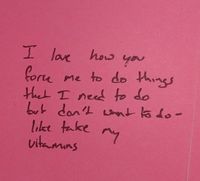 I love how you
force me to do things
that I need to do
but don't want to do -
like take my
vitamins